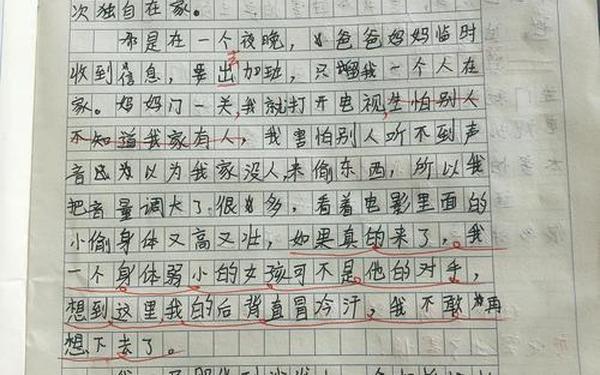 次独自在家。
那是在一个夜晚，爸爸妈妈临时
收到信息，要出去加班，只留我一个人在
家。妈妈门一关，我就打开电视，生怕别人
不知道我家有人，我害怕别人听不到声
音以为我家没人，来偷东西，所以我
把音量调大了很多，看着电影里面的
小偷身体又高又壮，如果真的来了，我
一个身体弱小的女孩可不是他的对手，
想到这里我的后背直冒冷汗，我不敢再
想下去了。